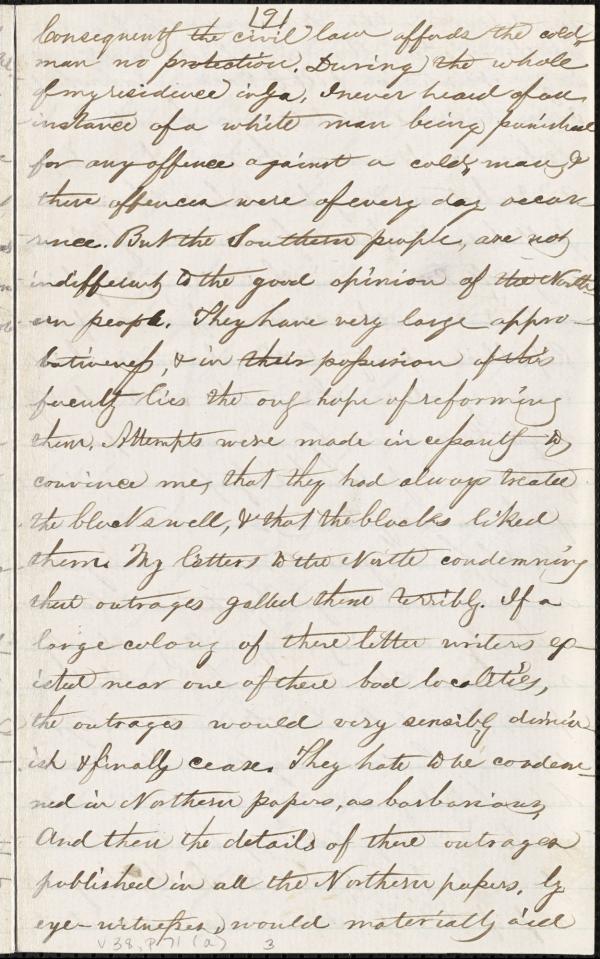 [9]
Consequently the civil law affords the cold,
man no protection. During the whole
of my residence in Ga, I never heard of an
instance of a white man being punished
for any offence against a cold, man, &
these offences were of every day occur-
rence. But the Southern people, are not
indifferent to the good opinion of the North-
ern people. They have very large appro-
bativeness, & in their possession of this
faculty lies the only hope of reforming
them. Attempts were made incessantly to
convince me, that they had always treated
the blacks well, & that the blacks liked
them. My letters to the North condemning
their outrages galled them terribly. If a
large colony of these letter writers ex-
isted near one of these bad localities,
the outrages would very sensibly dimin-
ish & finally cease. They hate to be condem-
ned in Northern papers, as barbarians,
And then the details of these outrages
published in all the Northern papers, by
eye-witnesses, would materially aid
V38, P71 (a) 3